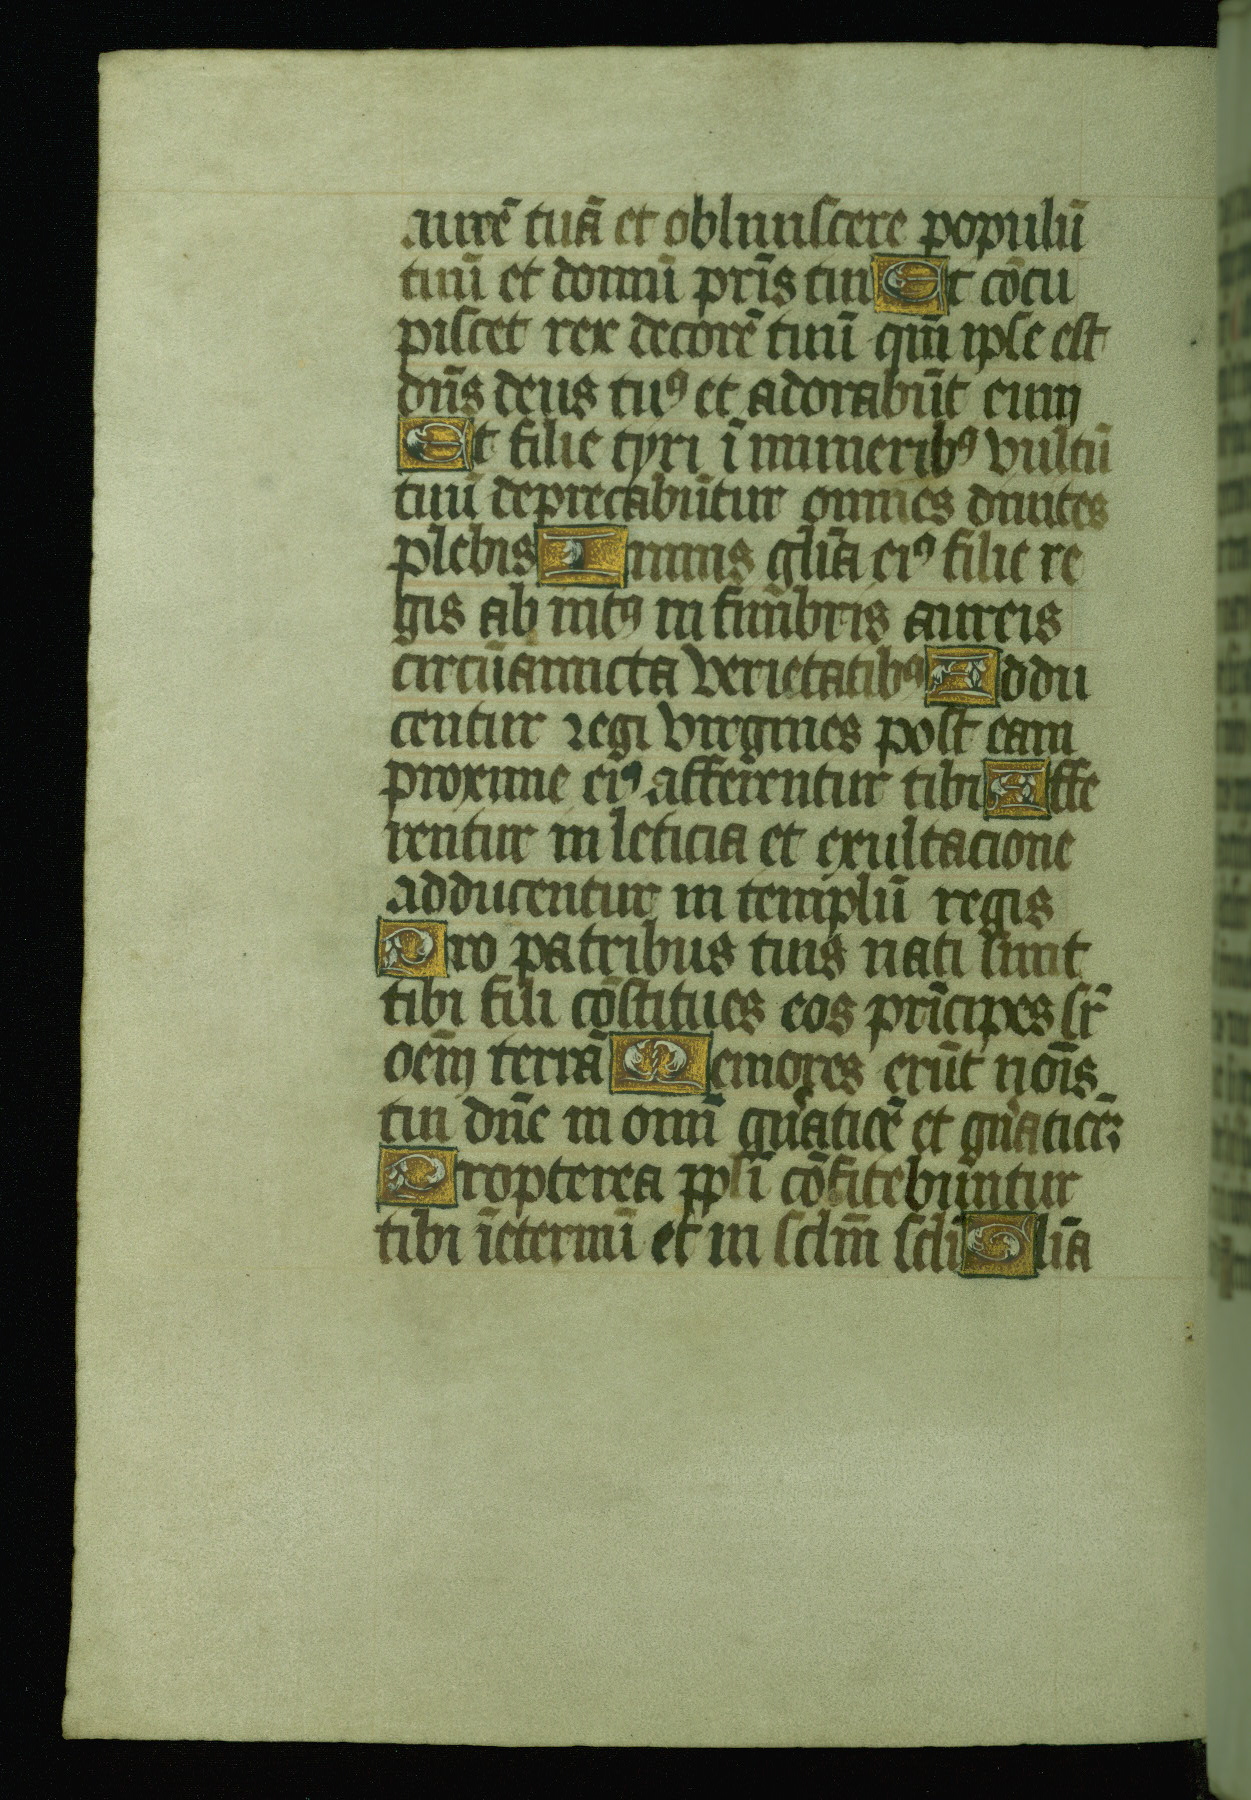 aurē tuā et obliuiscere populū
tuū et domū pr̄is tui Et cōcu
piscet rex decorē tuū qm̄ ipse est
dn̄s deus tuꝰ et adorabūt eum
Et filie tyri ī muneribꝰ vultū
tuū deprecabūtur omnes diuites
plebis Omnis gl̄ia eiꝰ filie re
gis ab intꝰ in fimbriis aureis
circūamicta verietatibꝰ Addu
centur regi virgines post eam
proxime eiꝰ afferentur tibi Affe
rentur in leticia et exultacione
adducentur in templū regis
Pro patribus tuis nati sunt
tibi filii cōstitues eos prīcipes sr̄
oēm terrā Memores erūt nōis
tui dn̄e in omī gn̄aticē et gn̄aticēꝫ
Propterea ppl̄i cōfitebūntur
tibi īeternū et in sclm̄ scli Glīa